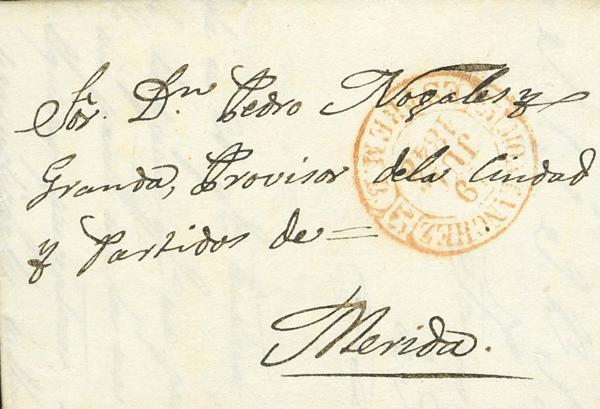 Sor. Dn. Pedro Nogales y
Granda, Provisor dela Ciudad
y Partidos de=
Merida.